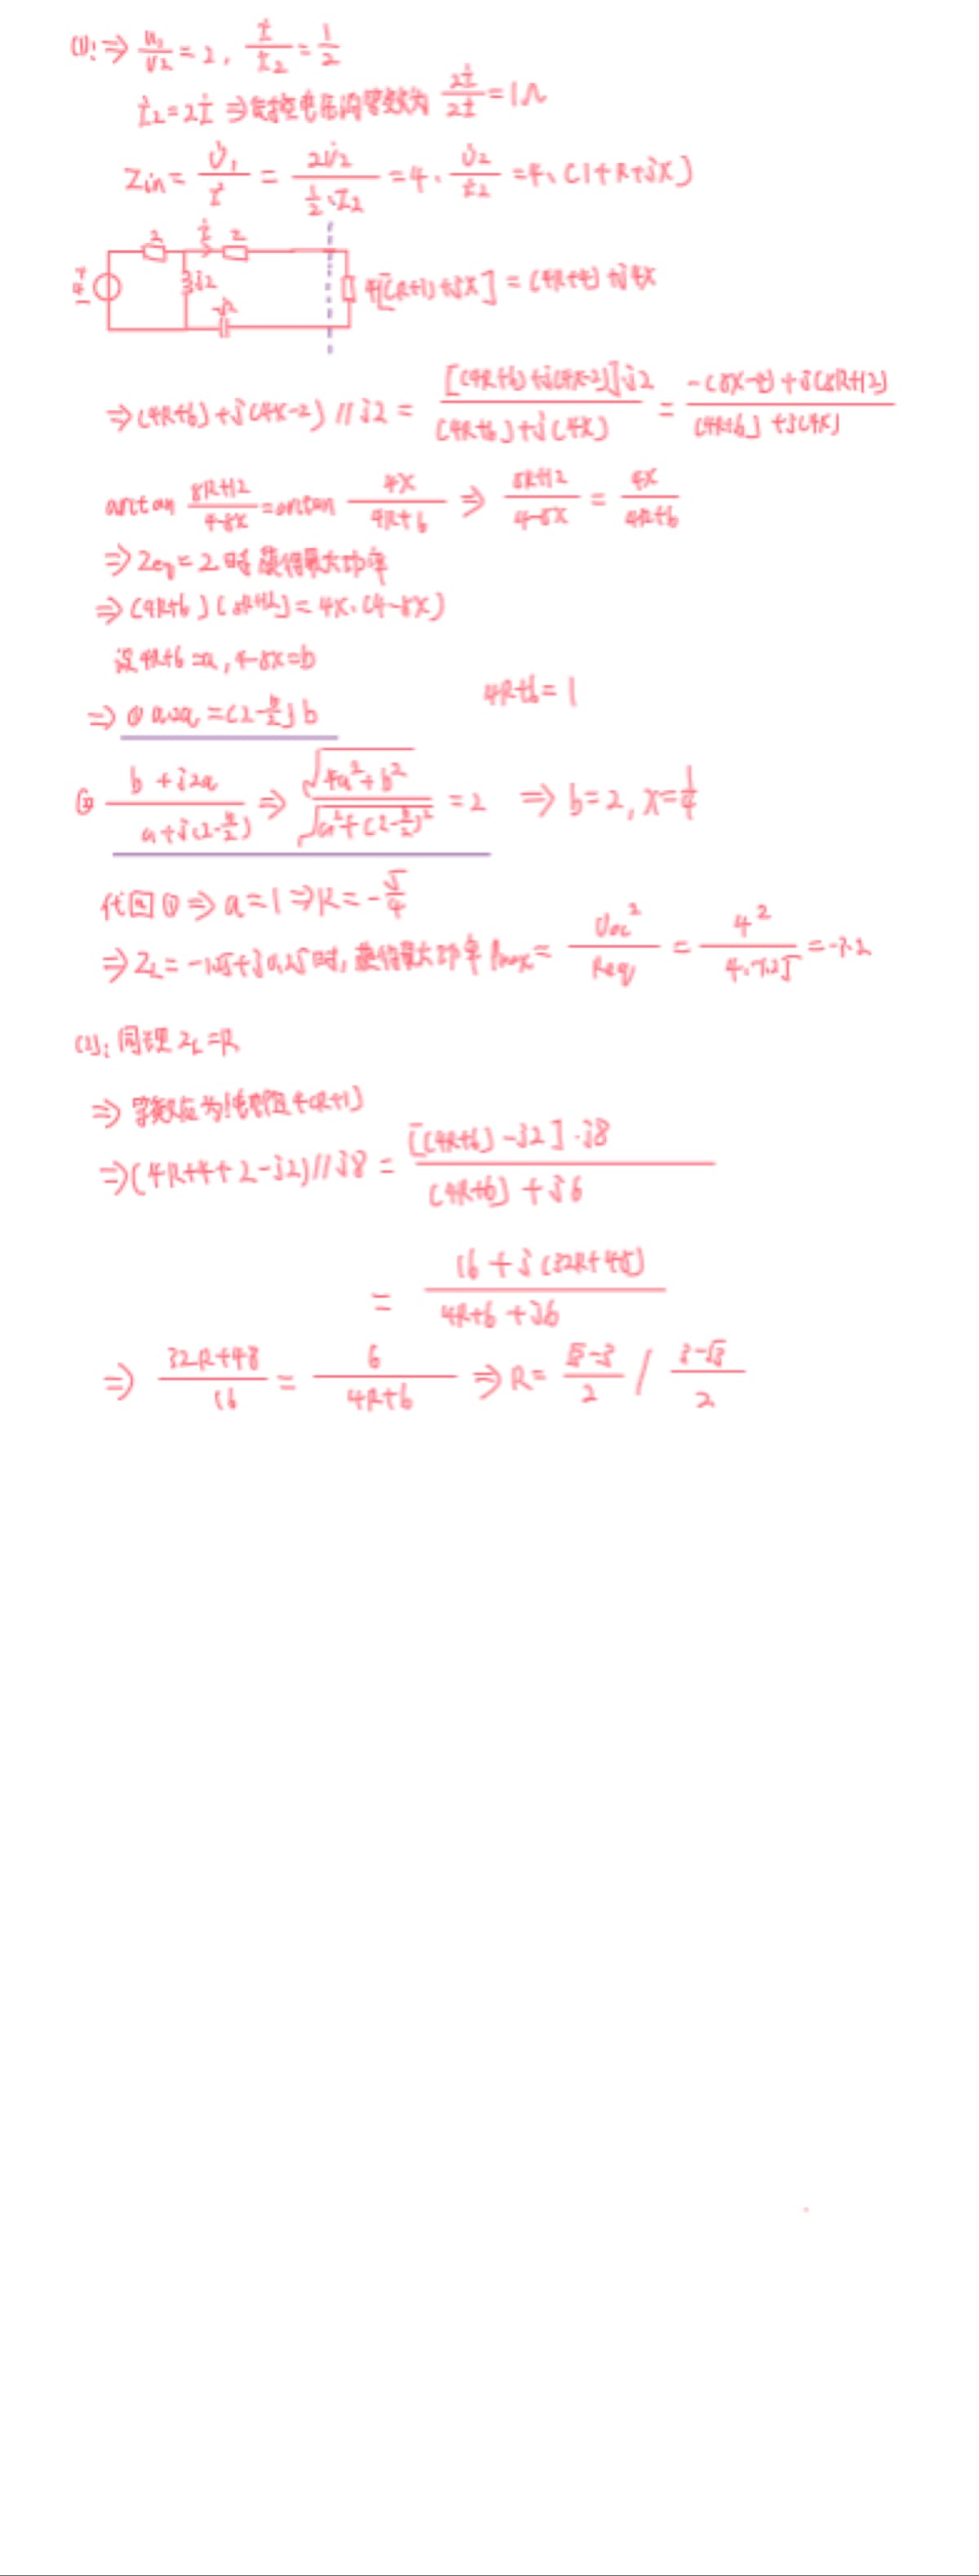 (1): ⇒ U₁/U₂ = 2, İ/İ₂ = 1/2
İ₂ = 2İ ⇒ 受控电压的等效为 2İ/2İ = 1Ω
Zin = U̇₁/İ = 2U̇₂/(1/2·İ₂) = 4·U̇₂/İ₂ = 4·(1+R+jX)
2 İ 2
+ 4 − j2 -j2 4[(R+1)+jX] = (4R+4)+j4X
⇒ (4R+6)+j(4X-2) // j2 = [(4R+6)+j(4X-2)]j2 / (4R+6)+j(4X) = -(8X-4)+j(8R+12) / (4R+6)+j(4X)
arctan (8R+12)/(4-8X) = arctan 4X/(4R+6) ⇒ (8R+12)/(4-8X) = 4X/(4R+6)
⇒ Zeq = 2 时获得最大功率
⇒ (4R+6)(8R+12) = 4X·(4-8X)
设 4R+6=a, 4-8X=b
4R+6=1
⇒ ① a·2a = (2-b/2)b
② (b+j2a)/(a+j(2-b/2)) ⇒ √(4a²+b²)/√(a²+(2-b/2)²) = 2 ⇒ b=2, X=1/4
代回① ⇒ a=1 ⇒ R = -5/4
⇒ ZL = -1.25+j0.25时, 获得最大功率 Pmax = Uoc²/Req = 4²/4·-1.25 = -3.2
(2): 同理 ZL=R
⇒ 等效应为纯电阻 4(R+1)
⇒ (4R+4+2-j2)//j8 = [(4R+6)-j2]·j8 / (4R+6)+j6
= 16+j(32R+48) / 4R+6+j6
⇒ (32R+48)/16 = 6/(4R+6) ⇒ R = (√3-3)/2 / (3-√3)/2